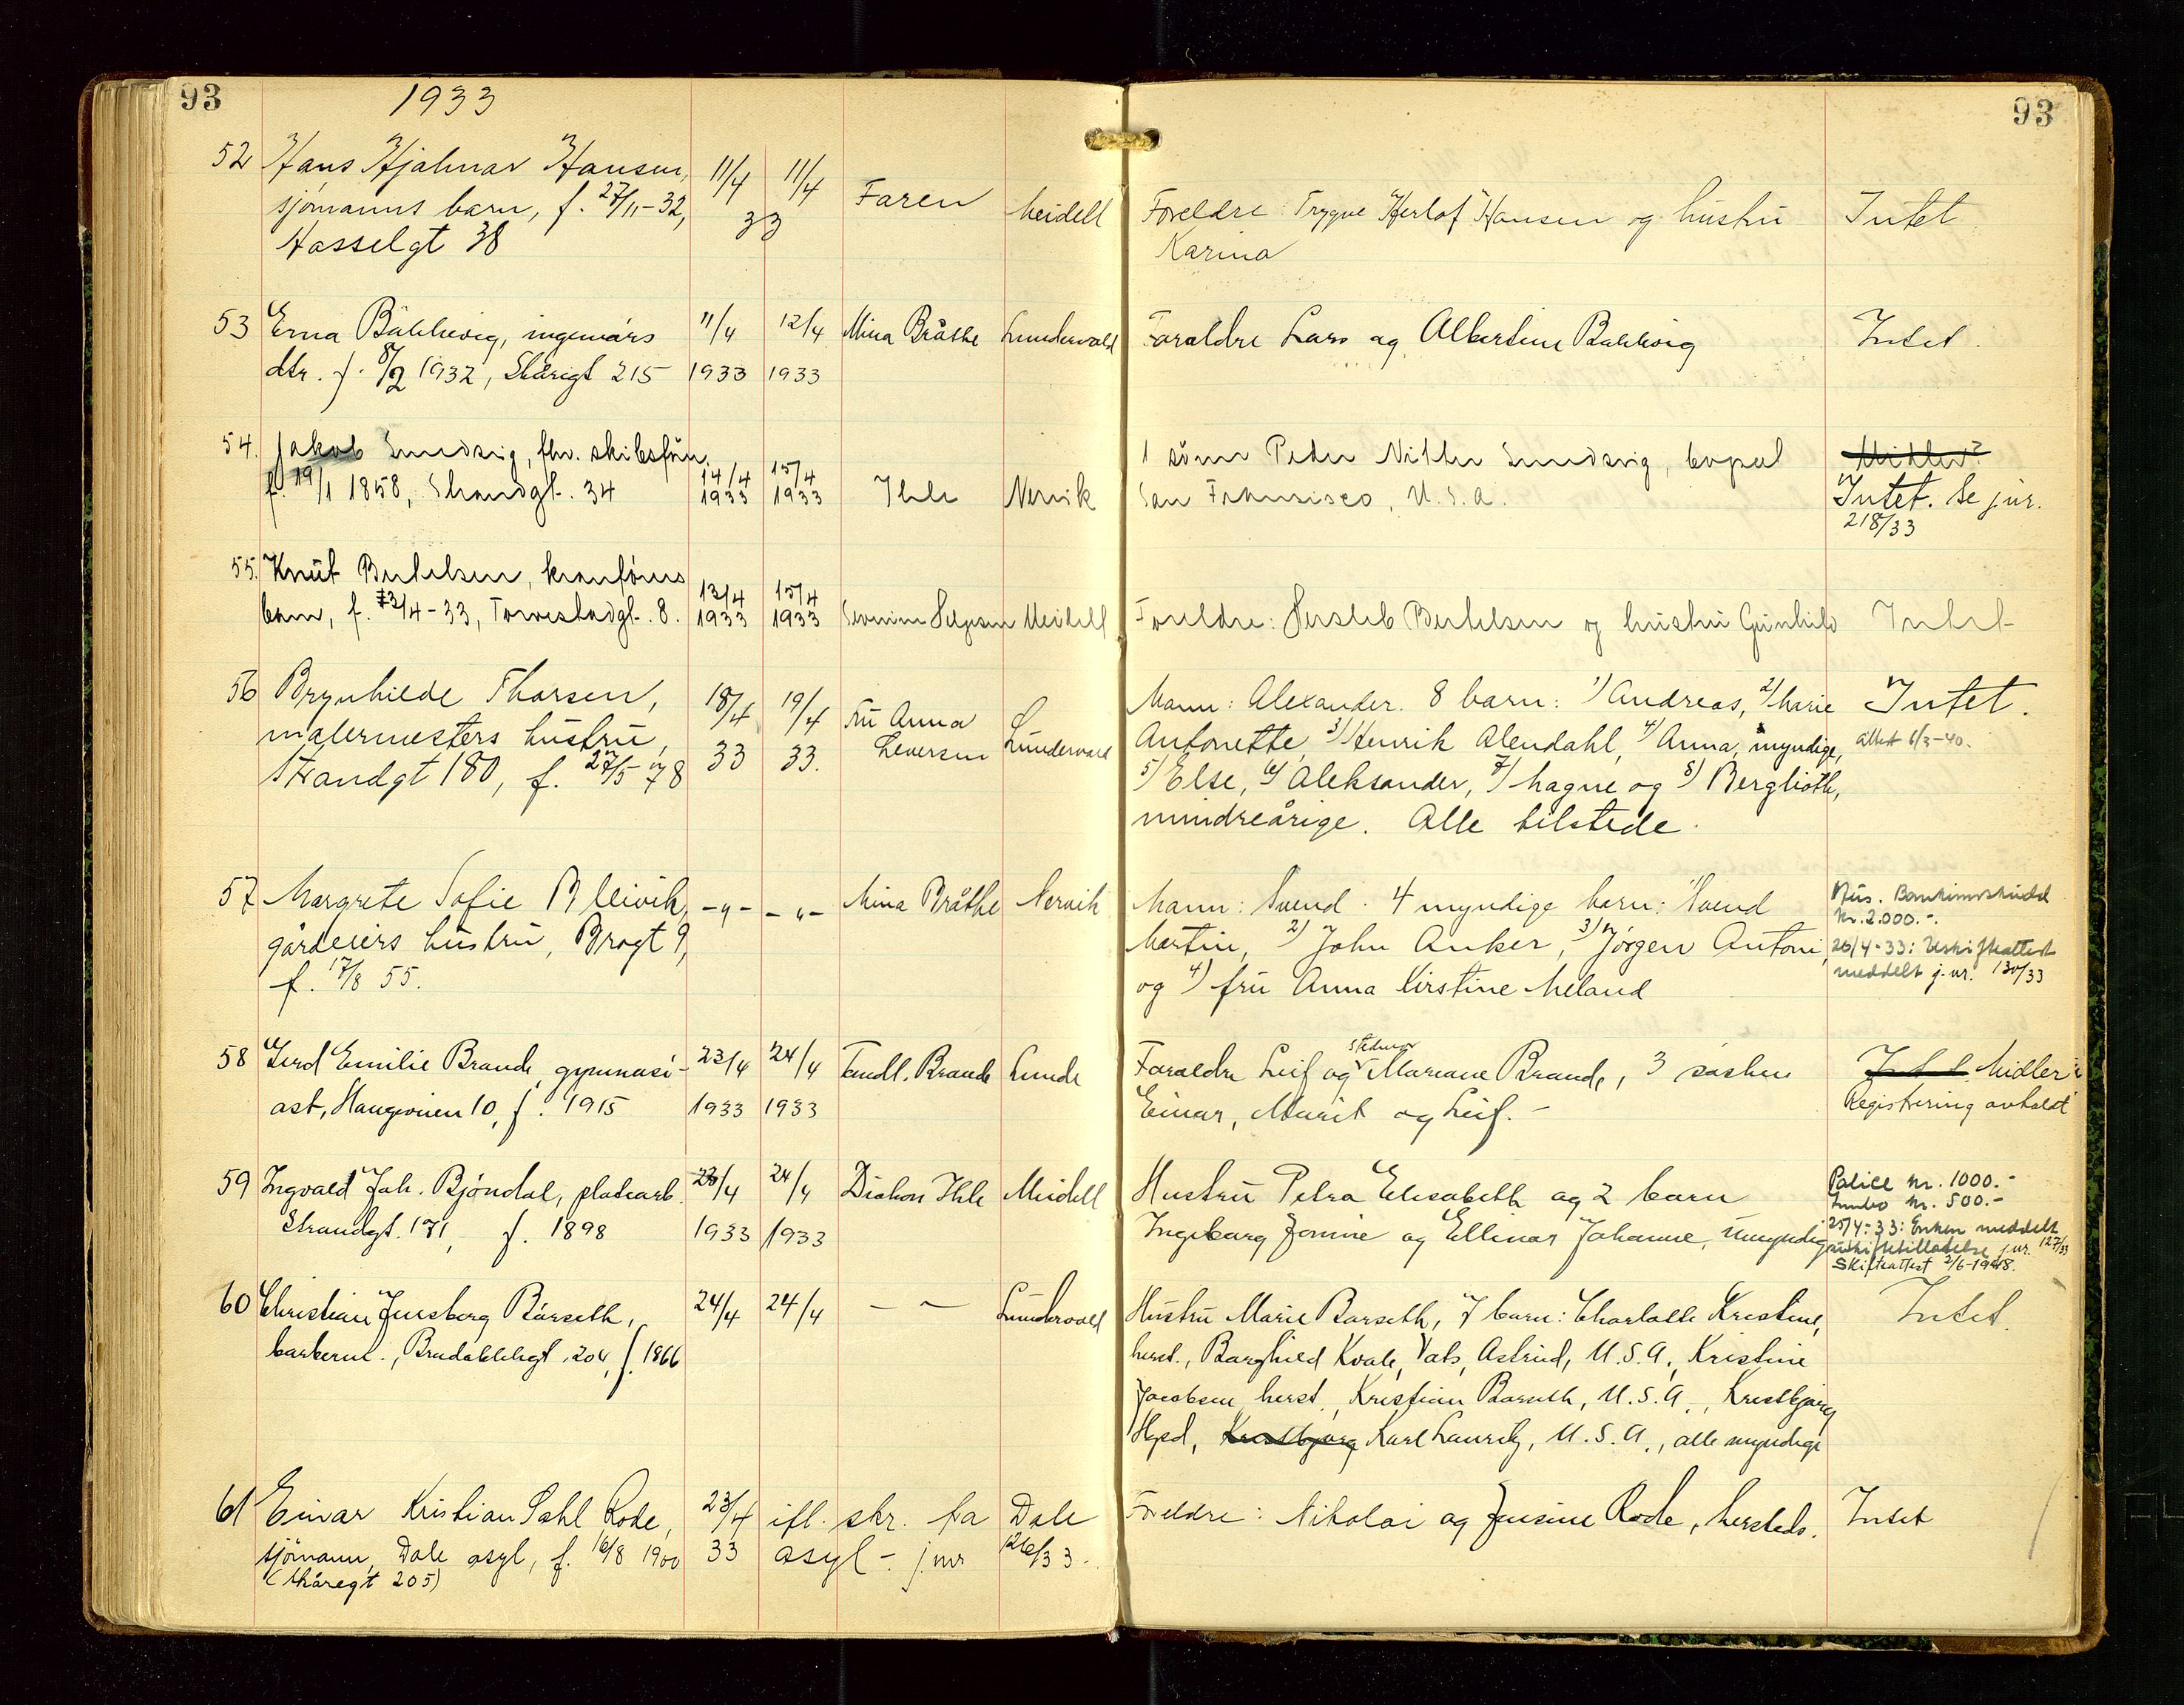 93
1933
93
52 Hans Hjalmar Hansen, 11/4 11/4 Faren Meidell Foreldre: Trygve Herlof Hansen og hustru Intet
sjömanns barn, f. 27/11-32, 33 Karina
Hasselgt 38
53 Erna Bakkevig, ingeniörs 11/4 12/4 Mina Bråthe Lundervold Foraldre Lars og Albertine Bakkevig Intet.
dtr. f. 8/2 1932, Skåregt 215 1933 1933
54. Jakob Sundsvig, fhv. skibsför. 14/4 15/4 Ihle Nervik 1 sönn Peder Sundsvig, bopel
f. 19/1 1858, Strandgt. 34 1933 1933 San Fransisco, U.S.A. Intet. Se j.nr.
218/33
55. Knut Bertelsen, kranförers 13/4 15/4 Severine Helgesen Meidell Foreldre: Hersleb Bertelsen og hustru Gunhild Intet
barn, f. 13/4-33, Torvestadgt. 8. 1933 1933
56 Brynhilde Thorsen, 18/4 19/4 Fru Anna Lundervold Mann: Alexander. 8 barn: 1) Andreas, 2) Marie Intet.
malermesters hustru, 33 33. Leversen Antonette, 3) Henrik Alendahl, 4) Anna, myndige, attest 6/3-40.
Strandgt 180, f. 27/5 78 5) Else, 6) Aleksander, 7) Magne og 8) Berglioth,
mindreårige. Alle tilstede.
57 Margrete Sofie Bleivik, -"- -"- Mina Bråthe Nervik Mann: Svend. 4 myndige barn: 1) Svend Hus. Bankinnskudd
gårdeiers hustru, Brogt 9, Martin, 2) John Anker, 3) Jörgen Antoni, kr. 2.000.-.
f. 17/8 55. og 4) fru Anna Kirstine Meland 26/4-33: Uskifteattest
meddelt j.nr. 130/33
58 Gerd Emilie Brande, gymnasi- 23/4 24/4 Tandl. Brande Lunde Foraldre Leif og Stedmor Mariane Brande, 3 søsken Intet Midler
ast, Haugeveien 10, f. 1915 1933 1933 Einar, Marit og Leif.- Registrering avholdt
59 Ingvald Joh. Bjöndal, platearb. 23/4 24/4 Diakon Ihle Meidell Hustru Petra Elisabeth og 2 barn Police kr. 1000.-
Strandgt. 171, f. 1898 1933 1933 Ingeborg Jonine og Ellinor Johanne, umyndig Innbo kr. 500.-
25/4-33: Enken meddelt
uskiftetilladelse j.nr. 127/33
Skifteattest 2/6-1948.
60 Christian Jensberg Bårseth, 24/4 24/4 — — Lundervold Hustru Marie Barseth, 7 barn: Charlotte Kristine, Intet.
barberm., Breidablikgt. 204, f. 1866 herst., Borghild Kvale, Vats, Astrid, U.S.A., Kristine
Jacobsen herst., Kristian Barseth, U.S.A., Krestbjørg
Hgsd, Krestbjørg Karl Lauritz, U.S.A., alle myndige
61 Einar Kristian Sahl Rode, 23/4 ifl. skr. fra Dale Foreldre: Nikolai og Jensine Rode, hersteds. Intet
sjömann, Dale asyl, f. 16/8 1900 33 asyl - j.nr 126/33.
(Skåregt 205)